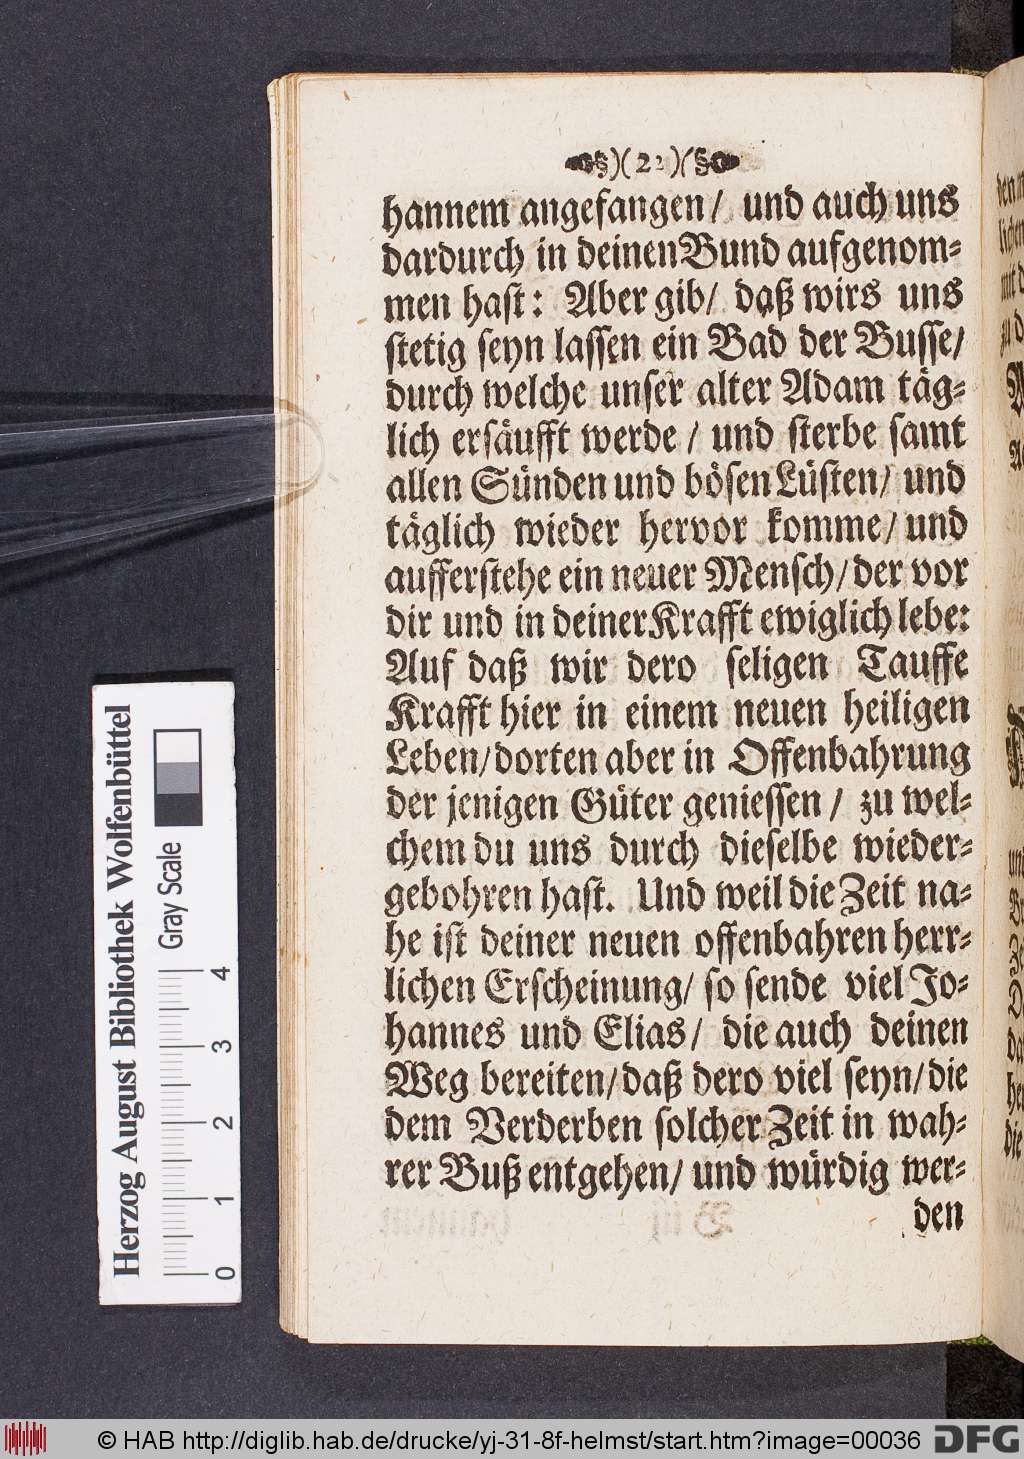 )( 22 )(
hannem angefangen/ und auch uns
dardurch in deinen Bund aufgenom-
men hast: Aber gib/ daß wirs uns
stetig seyn lassen ein Bad der Busse/
durch welche unser alter Adam täg-
lich ersäufft werde / und sterbe samt
allen Sünden und bösen Lüsten/ und
täglich wieder hervor komme/ und
aufferstehe ein neuer Mensch/ der vor
dir und in deiner Krafft ewiglich lebe:
Auf daß wir dero seligen Tauffe
Krafft hier in einem neuen heiligen
Leben/ dorten aber in Offenbahrung
der jenigen Güter geniessen / zu wel-
chem du uns durch dieselbe wieder-
gebohren hast. Und weil die Zeit na-
he ist deiner neuen offenbahren herr-
lichen Erscheinung/ so sende viel Jo-
hannes und Elias/ die auch deinen
Weg bereiten/ daß dero viel seyn/ die
dem Verderben solcher Zeit in wah-
rer Buß entgehen/ und würdig wer-
den
Herzog August Bibliothek Wolfenbüttel
Gray Scale
0 1 2 3 4
© HAB http://diglib.hab.de/drucke/yj-31-8f-helmst/start.htm?image=00036
DFG